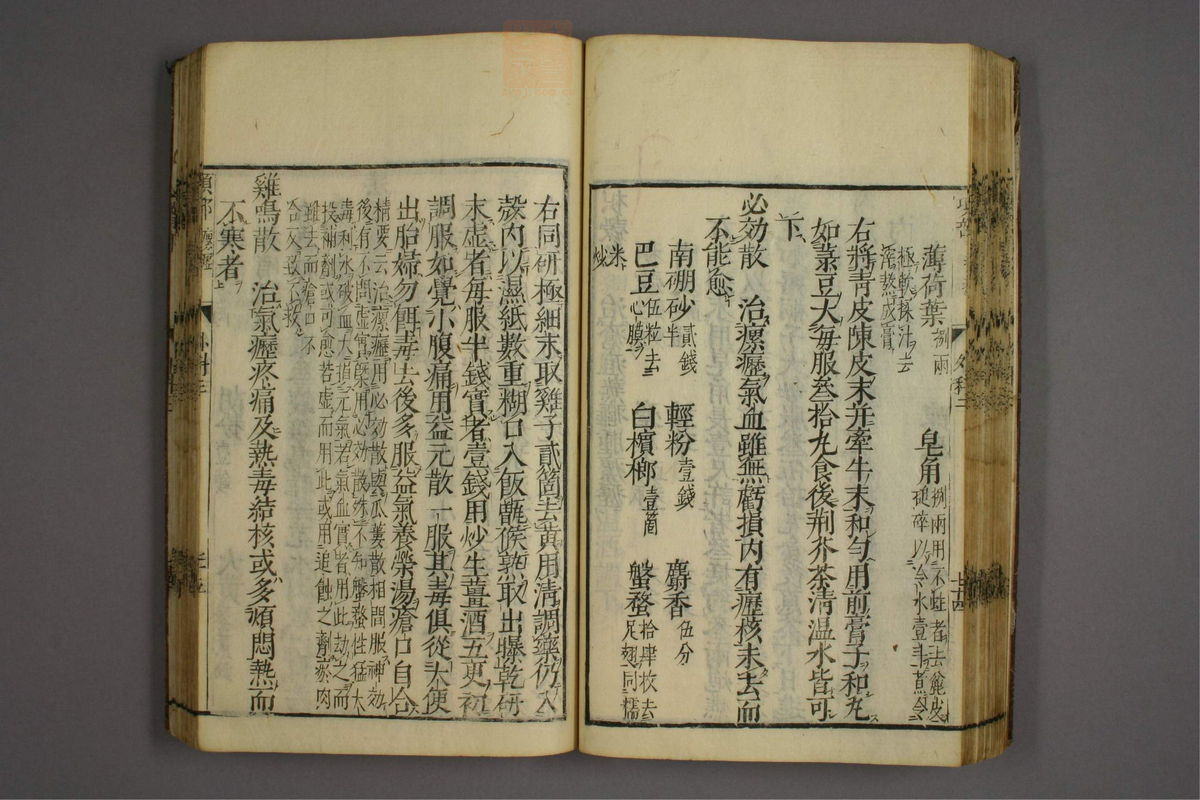 薄荷葉 捌兩 皂角 捌兩用不蛀者去麄皮
搥碎以冷水壹斗煮令
極軟揉汁去
滓熬成膏
右將青皮陳皮末并牽牛末和勻用前膏子和丸
如菉豆大每服叁拾丸食後荆芥茶清温水皆可
下
必効散 治瘰癧氣血雖無虧損内有癧核未去而
不能愈
南硼砂 貳錢半 輕粉 壹錢 麝香 伍分
巴豆 伍粒去心膜 白檳榔 壹箇 蟹蝥 拾肆枚去足翅同糯
米炒
右同研極細末取雞子貳箇去黄用清調藥仍入
殼内以濕紙數重糊口入飯甑候熟取出曝乾研
末虚者每服半錢實者壹錢用炒生薑酒五更初
調服如覺小腹痛用益元散一服其毒俱從大便
出胎婦勿餌毒去後多服益氣養榮湯瘡口自合
精要云治瘰癧用必効散與瓜蔞散相間服神効
後有不問虚實槩用必効散殊不知蟹蝥性猛大
毒利水破血大損元氣若氣血實者用此劫之而
投補劑或可愈若虚而用此或用追蝕之劑瘀肉
雖去而瘡口不
合反致不救
雞鳴散 治氣癧疼痛及熱毒結核或多煩悶熱而
不寒者